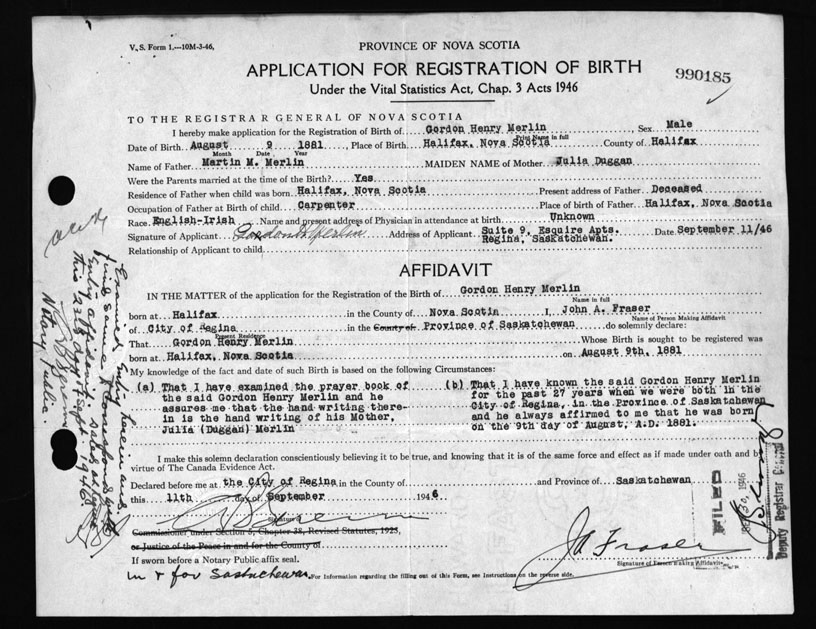 V. S. Form 1.—10M-3-46.
PROVINCE OF NOVA SCOTIA
APPLICATION FOR REGISTRATION OF BIRTH
990185
Under the Vital Statistics Act, Chap. 3 Acts 1946
TO THE REGISTRAR GENERAL OF NOVA SCOTIA
I hereby make application for the Registration of Birth of Gordon Henry Merlin, Sex Male
Print Name in full
Date of Birth August 9 1881, Place of Birth Halifax, Nova Scotia County of Halifax
Month Date Year
Name of Father Martin M. Merlin MAIDEN NAME of Mother Julia Duggan
Were the Parents married at the time of the Birth? Yes
Residence of Father when child was born Halifax, Nova Scotia Present address of Father Deceased
Occupation of Father at Birth of child Carpenter Place of birth of Father Halifax, Nova Scotia
Race English-Irish Name and present address of Physician in attendance at birth Unknown
Signature of Applicant Gordon H Merlin Address of Applicant Suite 9, Esquire Apts. Date September 11/46
Regina, Saskatchewan.
Relationship of Applicant to child
AFFIDAVIT
IN THE MATTER of the application for the Registration of the Birth of Gordon Henry Merlin
Name in full
born at Halifax in the County of Nova Scotia I, John A. Fraser
Name of Person Making Affidavit
of City of Regina in the County of Province of Saskatchewan do solemnly declare:
Present Residence
That Gordon Henry Merlin Whose Birth is sought to be registered was
born at Halifax, Nova Scotia on August 9th, 1881
My knowledge of the fact and date of such Birth is based on the following Circumstances:
(a) That I have examined the prayer book of
the said Gordon Henry Merlin and he
assures me that the hand writing there-
in is the hand writing of his Mother,
Julia (Duggan) Merlin
(b) That I have known the said Gordon Henry Merlin
for the past 27 years when we were both in the
City of Regina, in the Province of Saskatchewan
and he always affirmed to me that he was born
on the 9th day of August, A.D. 1881.
I make this solemn declaration conscientiously believing it to be true, and knowing that it is of the same force and effect as if made under oath and by
virtue of The Canada Evidence Act.
Declared before me at the City of Regina in the County of and Province of Saskatchewan
this 11th day of September 1946
Signature
Commissioner under Section 5, Chapter 38, Revised Statutes, 1923,
or Justice of the Peace in and for the County of
If sworn before a Notary Public affix seal.
in & for Saskatchewan.
For Information regarding the filling out of this Form, see Instructions on the reverse side.
J A Fraser
Signature of Person Making Affidavit
FILED
30 1946
Deputy Registrar General
Notary Public